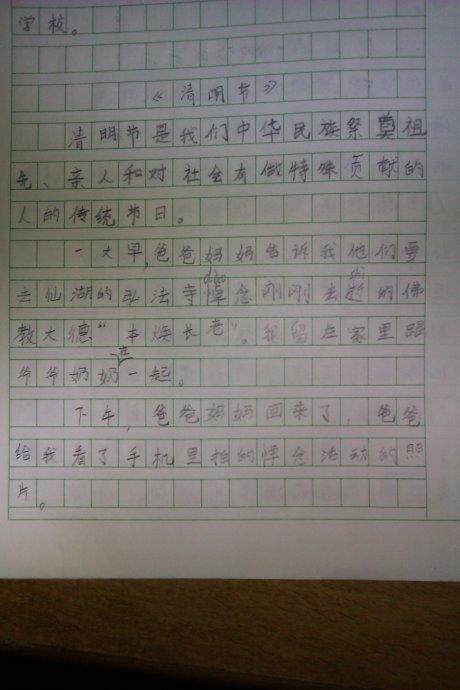 学校。
《清明节》
清明节是我们中华民族祭奠祖
先、亲人和对社会有做特殊贡献的
人的传统节日。
一大早,爸爸妈妈告诉我他们要
dào shì
去仙湖的弘法寺悼念刚刚去逝的佛
教大德“本焕长老”。我留在家里跟
在
爷爷奶奶一起。
下午,爸爸妈妈回来了,爸爸
给我看了手机里拍的悼念活动的照
片。